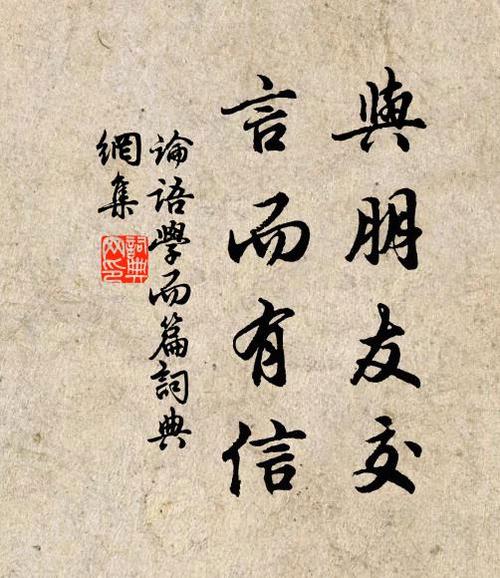 與朋友交
言而有信
論語學而篇詞典
網集
詞典
网印